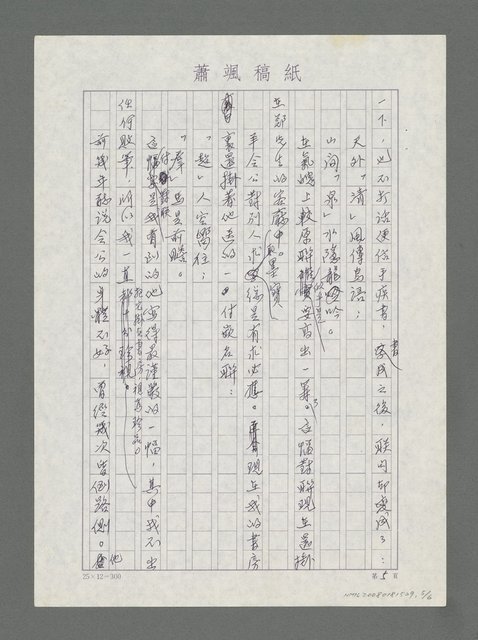 蕭颯稿紙
一下，也不打話便信手疾書，書成之後，聯句即變成了：
天外「清」風傳鳥語；
山間「泉」水隱龍吟。
在氣魄上較原聯要高出一籌。這幅對聯現在還掛
在鄭先生的客廳中。
年公對別人求墨寶總是有求必應。現在我的書房
裏還掛著他送的一付嵌名聯：
「超」人空嚮往；
「群」馬是前瞻。
這幅對聯是我看到的他寫得最謹嚴的一幅，其中找不出
任何敗筆，所以我一直把它掛在書房視為珍品。
前幾年聽說年公的身體不好，曾經幾次昏倒路側。他
25×12=300
第5頁
NMTL20080181529, 5/6